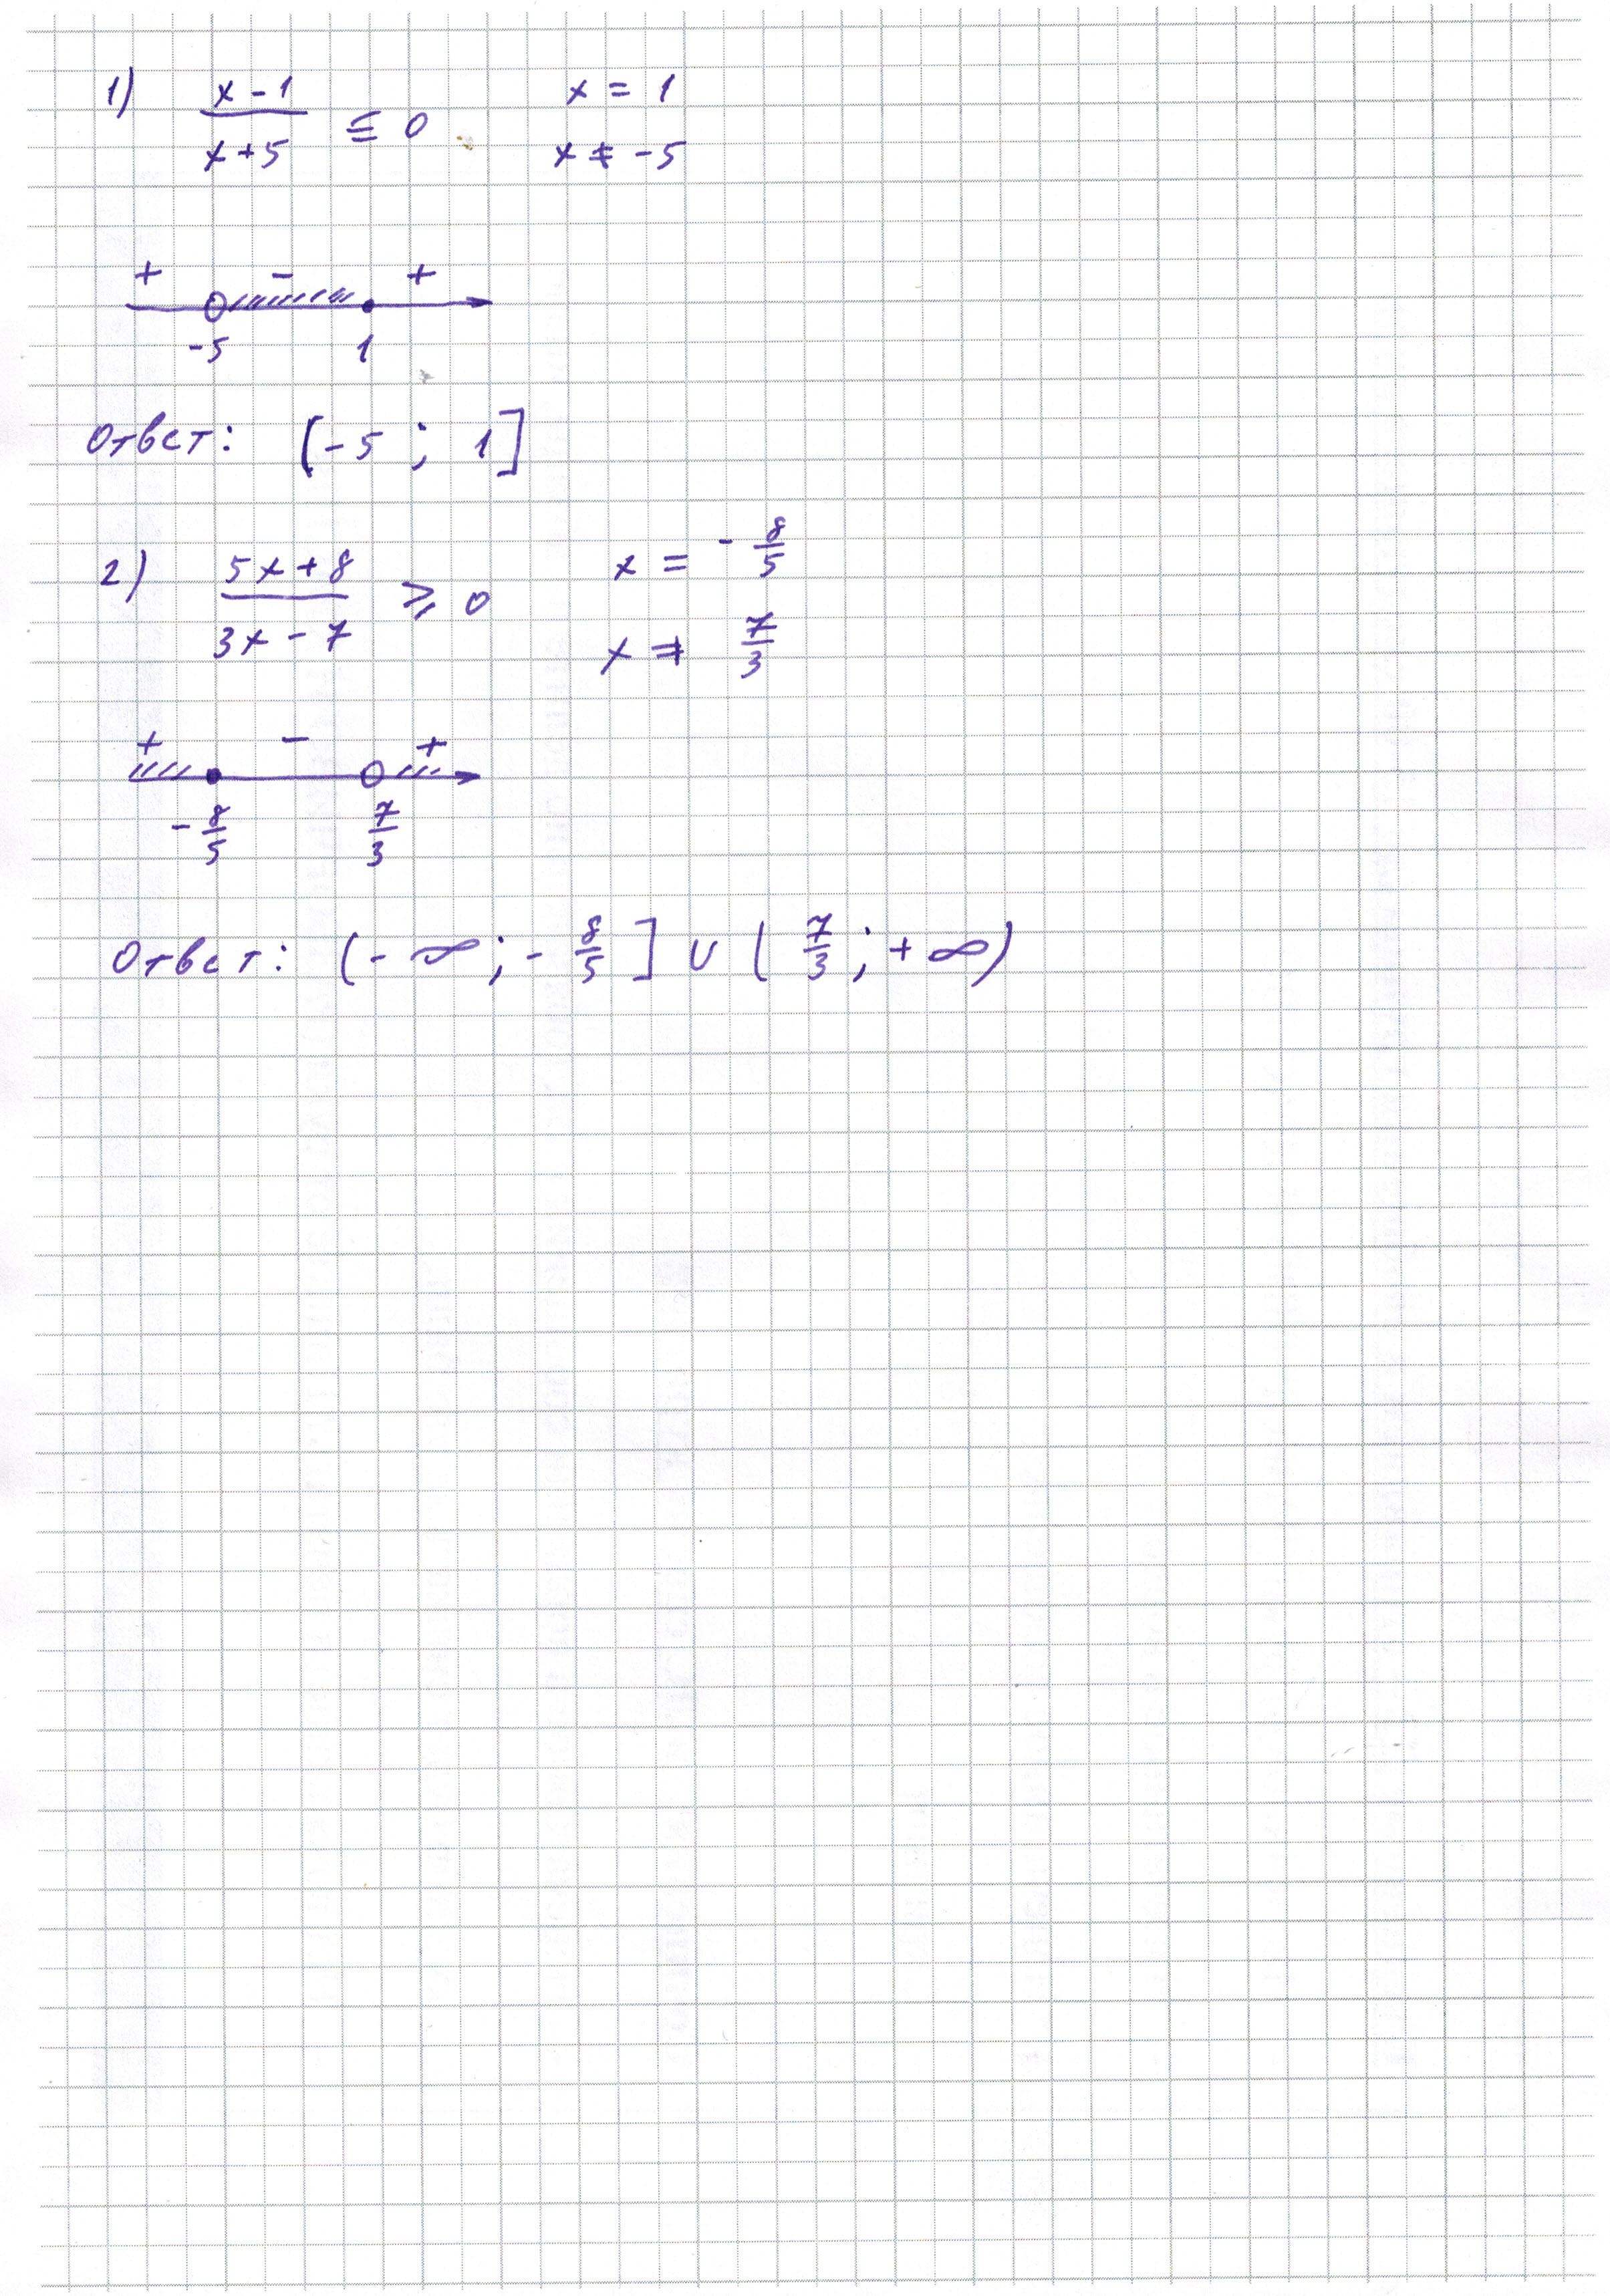 1) (x-1)/(x+5) ≤ 0 x = 1
x ≠ -5
+ - +
-5 1
Ответ: (-5 ; 1]
2) (5x+8)/(3x-7) ⩾ 0 x = -8/5
x ≠ 7/3
+ - +
-8/5 7/3
Ответ: (-∞; -8/5] ∪ (7/3; +∞)